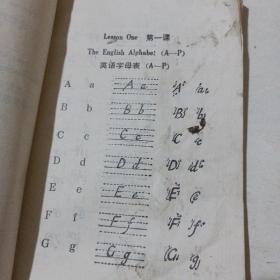 Lesson One 第一课
The English Alphabet (A—P)
英语字母表 (A—P)
A a A a A a
B b B b B b
C c C c C c
D d D d D d
E e E e E e
F f F f F f
G g G g G g